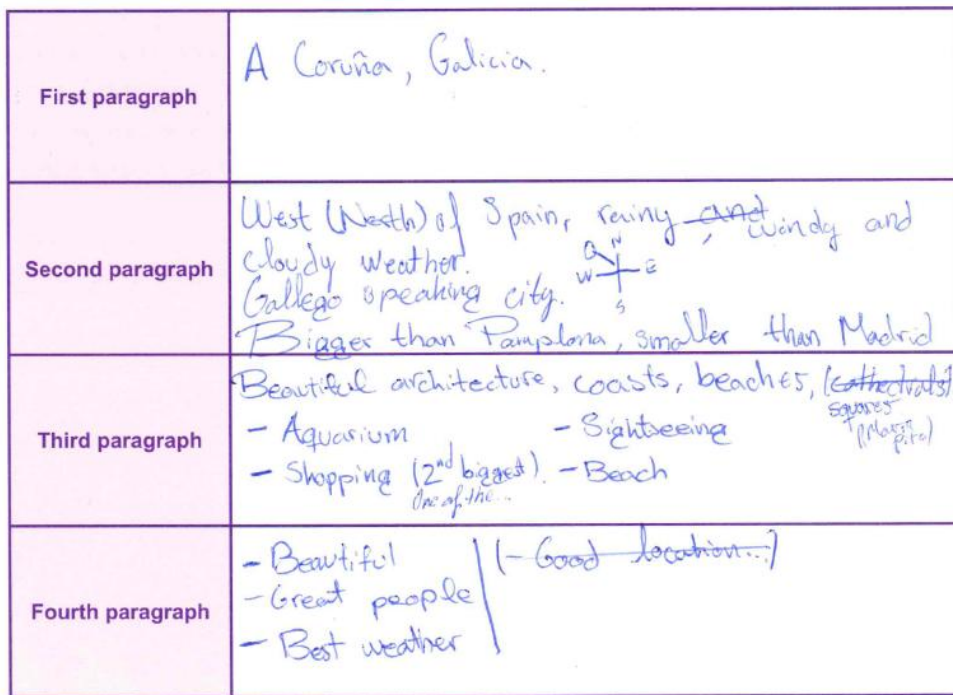 First paragraph
A Coruña, Galicia.
Second paragraph
West (North) of Spain, rainy and, windy and
cloudy weather.
Gallego speaking city.
N
W E
S
Bigger than Pamplona, smaller than Madrid
Third paragraph
Beautiful architecture, coasts, beaches, (cathedrals)
squares
(María Pita)
- Aquarium - Sightseeing
- Shopping (2nd biggest). - Beach
One of the...
Fourth paragraph
- Beautiful (- Good location...)
- Great people
- Best weather